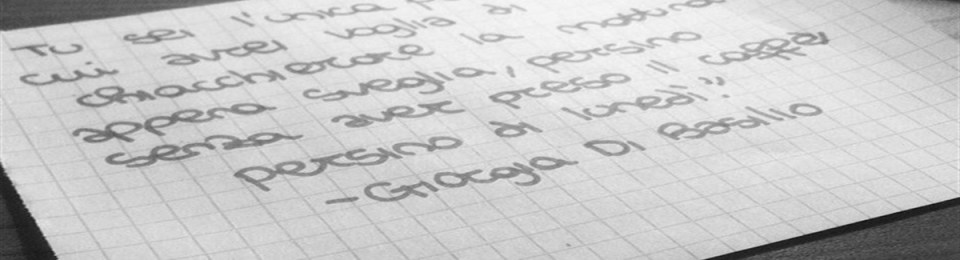 Tu sei l'unica
cui avrei voglia di
chiacchierare la mattina
appena sveglia, persino
senza aver preso il caffè,
persino di lunedì".
-Giorgia Di Basilio